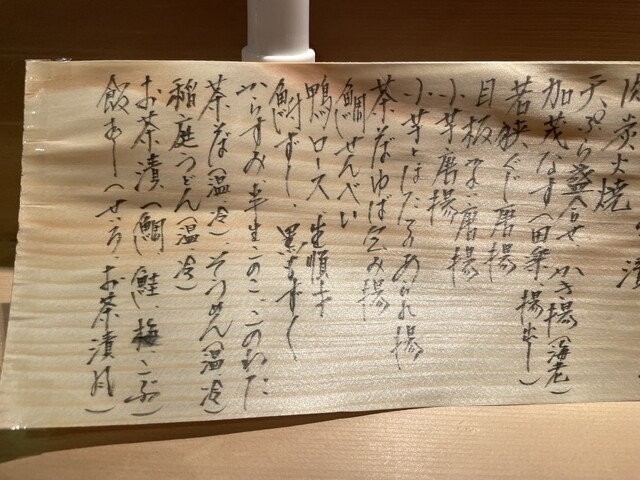 肉炭火焼
天ぷら盛合せ、かき揚(海老)
加茂なす(田楽、揚出し)
若狭ぐじ唐揚
目板 唐揚
小芋唐揚
小芋とほたるあられ揚
茶そばゆば包み揚
鯛せんべい
鴨ロース
鮒ずし、
からすみ、半生このこ、このわた
茶そば(温、冷)、そうめん(温、冷)
稲庭うどん(温、冷)
お茶漬(鯛、鮭、梅、こぶ)
飯むし(せいろ、お茶漬風)